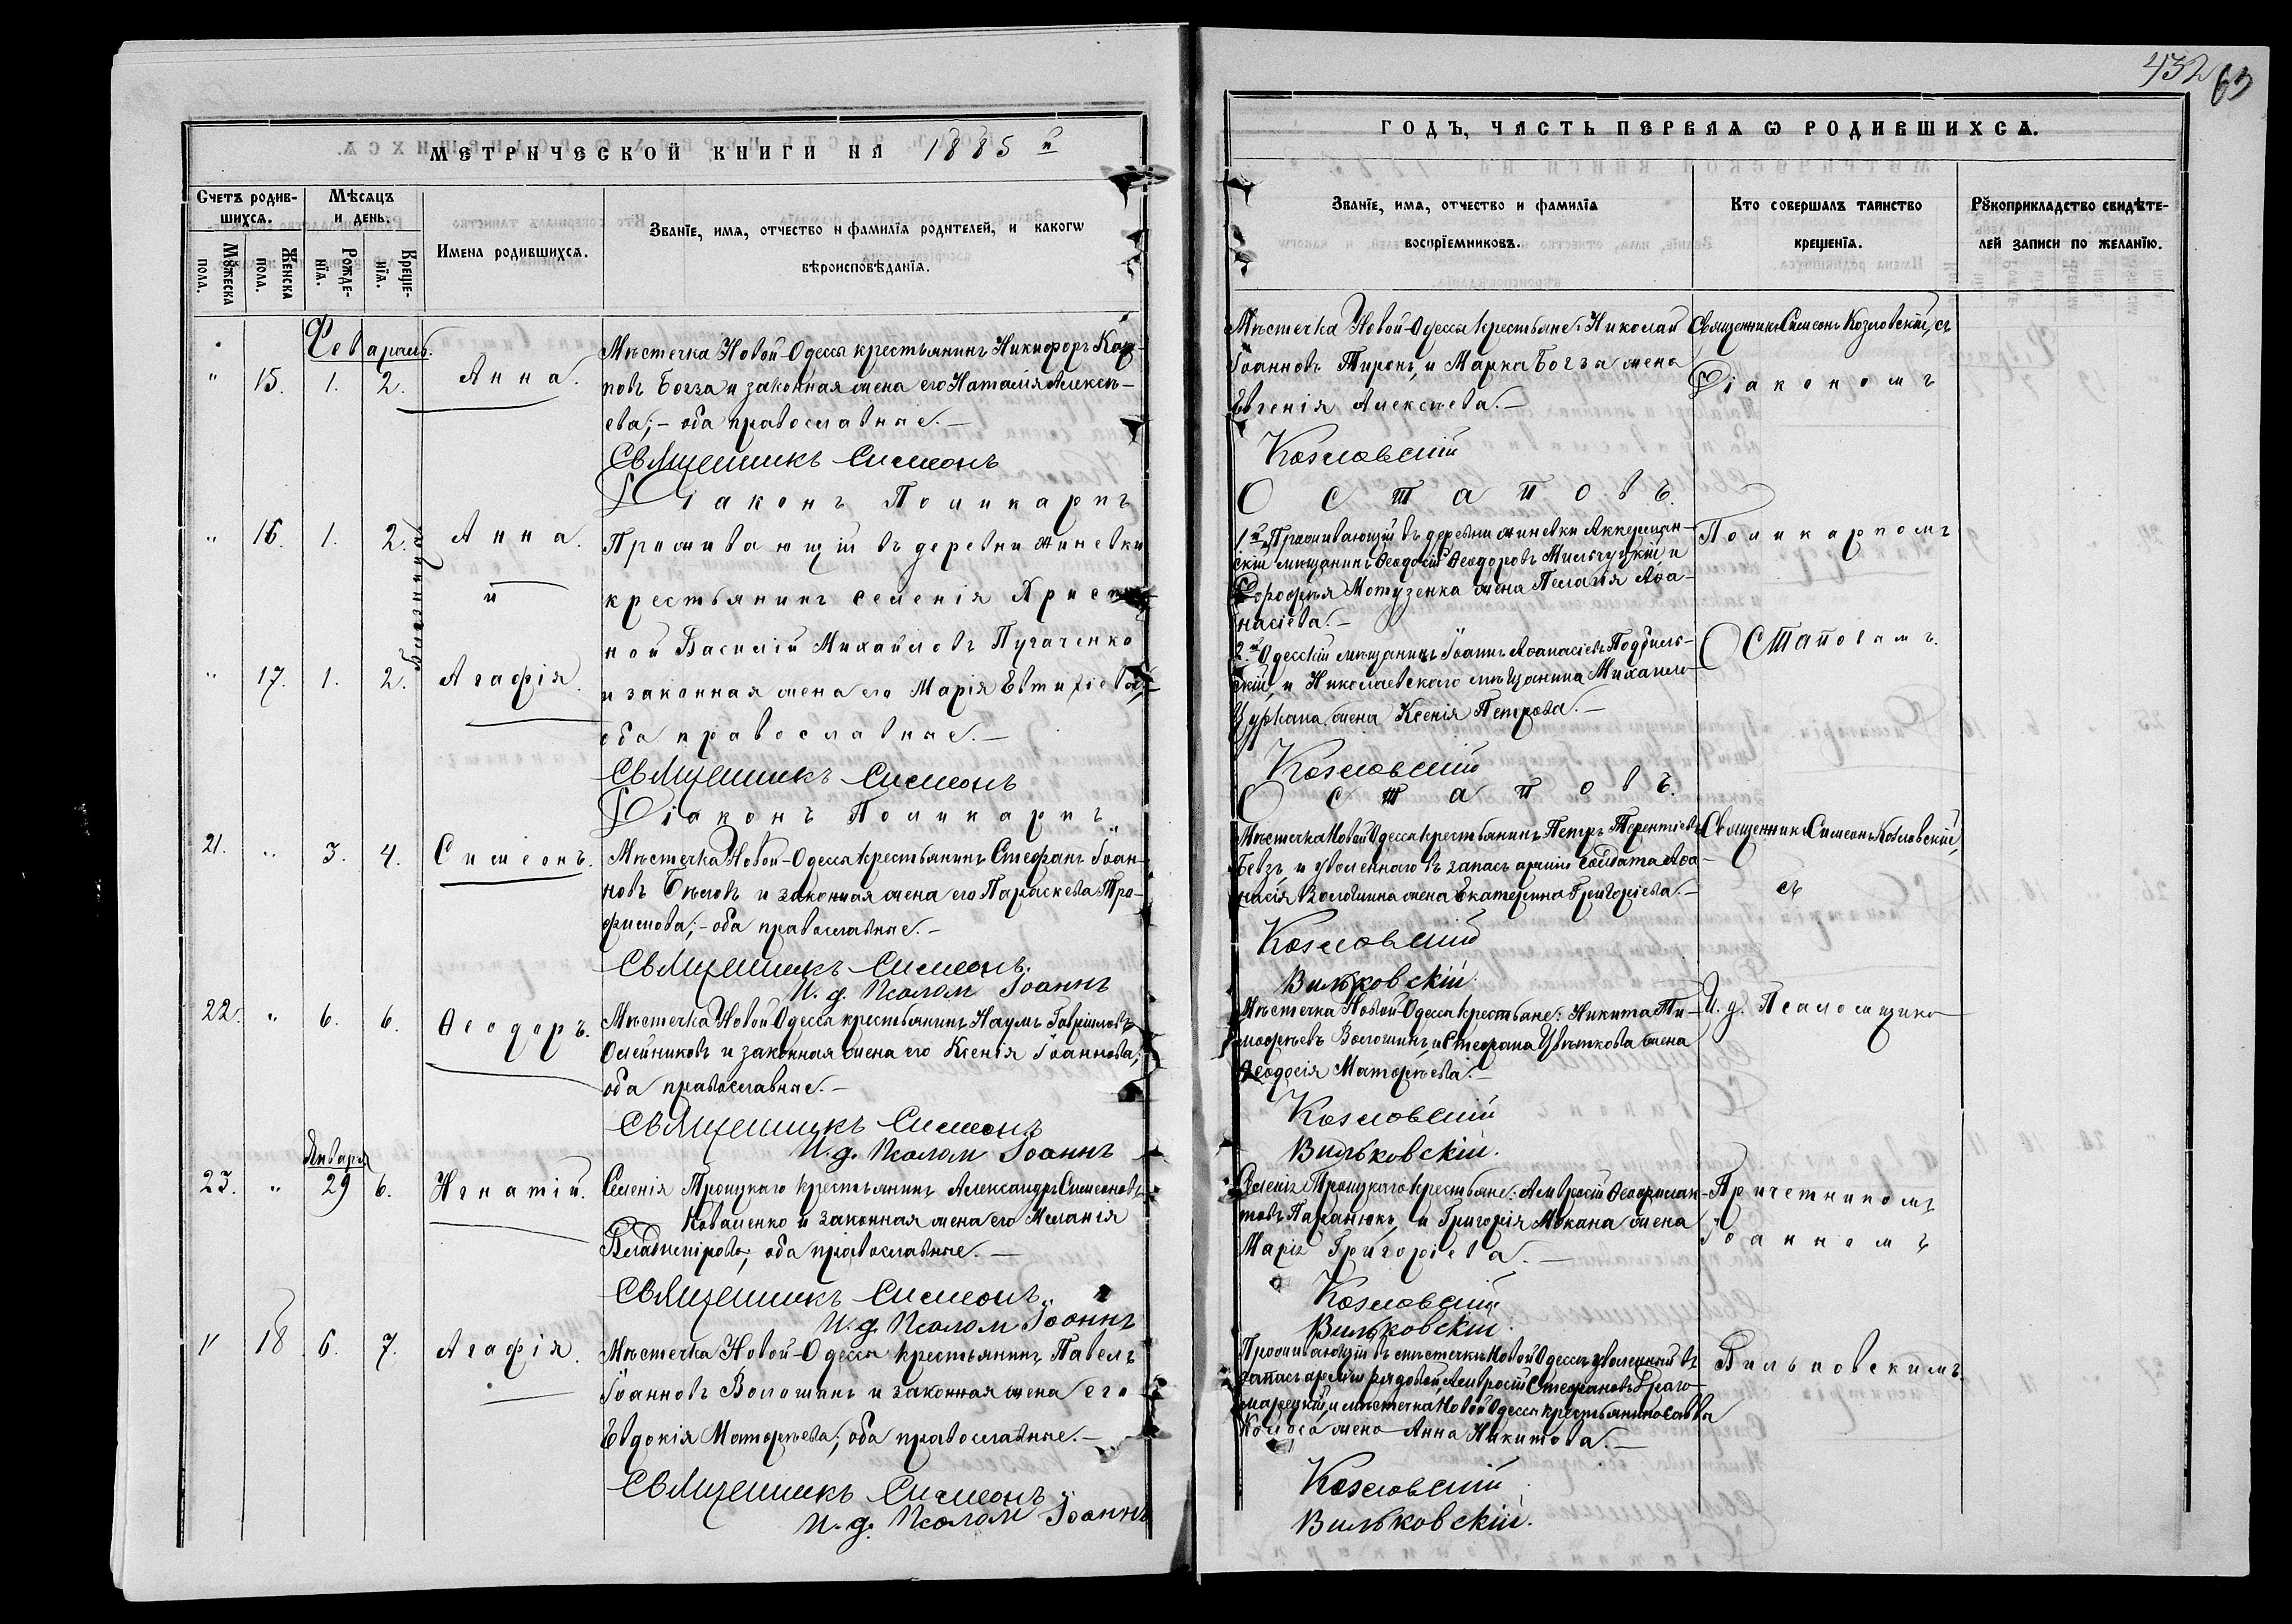 432
63
МЕТРИЧЕСКОЙ КНИГИ НА 1885 й
ГОДЪ, ЧАСТЬ ПЕРВАЯ Ѡ РОДИВШИХСѦ.
Счетъ родив-
шихсѧ.
Мѣсѧцъ
и день.
Мꙋжеска
пола.
Женска
пола.
Рожде-
нїѧ.
Креще-
нїѧ.
Имена родившихсѧ.
Званїе, имѧ, отчество и фамилїѧ родителей, и какогѡ
вѣроисповѣданїѧ.
Званїе, имѧ, отчество и фамилїѧ
воспрїемниковъ.
Кто совершалъ таинство
крещенїѧ.
Рꙋкоприкладство свидѣте-
лей записи по желанїю.
Февраль.
" 15. 1. 2. Анна.
Мѣстечка Новой-Одессы крестьянинъ Никифоръ Кар-
повъ Богза и законная жена его Наталія Алексѣ-
ева; - оба православные. -
Священникъ Симеонъ
Діаконъ Поликарпъ
Мѣстечка Новой-Одессы крестьяне: Николай
Іоанновъ Тиронъ, и Марка Богза жена
Евгенія Алексѣева. -
Козловскій
Остаповъ.
Священникъ Симеонъ Козловскій, съ
Діакономъ
" 16. 1. 2. Анна.
и
" 17. 1. 2. Агафія.
Близнецы
Проживающій въ деревни
крестьянинъ селенія Христ
ной Василій Михайловъ Пугаченко
и законная жена его Марія Евтихіева;
оба православные. -
Священникъ Симеонъ
Діаконъ Поликарпъ
1й Проживающій въ деревни Аккерман-
скій мѣщанинъ Ѳеодосій Ѳеодоровъ Мильчуцкій и
Дорофея Мотузенка жена Пелагія Аѳа-
насіева. -
2й Одесскій мѣщанинъ Іоаннъ Аѳанасіевъ Подгиль-
скій, и Николаевскаго мѣщанина Михаила
Цуркана жена Ксенія Петрова. -
Козловскій
Остаповъ.
Поликарпомъ
Остаповымъ.
21. " 3. 4. Симеонъ.
Мѣстечка Новой-Одессы крестьянинъ Стефанъ Іоан-
новъ Бѣловъ и законная жена его Параскева Тро-
фимова; - оба православные. -
Священникъ Симеонъ
И. д. Псалом Іоаннъ
Мѣстечка Новой Одессы крестьянинъ Петръ Терентіевъ
Бевзъ, и уволеннаго въ запасъ арміи солдата Аѳа-
насія Волошина жена Екатерина Григоріева. -
Козловскій
Вильковскій.
Священникъ Симеонъ Козловскій,
съ
22. " 6. 6. Ѳеодоръ.
Мѣстечка Новой Одессы крестьянинъ Наумъ Гавріиловъ
Олейниковъ и законная жена его Ксенія Іоаннова;
оба православные. -
Священникъ Симеонъ
И. д. Псалом Іоаннъ
Мѣстечка Новой-Одессы крестьяне: Никита Ти-
мофѣевъ Волошинъ, и Стефана Цвѣткова жена
Ѳеодосія Матѳѣева. -
Козловскій
Вильковскій.
И. д. Псаломщика
Января
23. " 29 6. Игнатій.
Селенія Троицкаго крестьянинъ Александръ Симеоновъ
Коваленко и законная жена его Меланія
Владимірова; оба православные. -
Священникъ Симеонъ
И. д. Псалом Іоаннъ
Селенія Троицкаго крестьяне: Амвросій Ѳеофилак-
товъ Паранюкъ, и Григорія Мокана жена
Марія Григоріева. -
Козловскій
Вильковскій.
Причетникомъ
Іоанномъ
" 18 6. 7. Агафія.
Мѣстечка Новой-Одессы крестьянинъ Павелъ
Іоанновъ Волошинъ и законная жена его
Евдокія Матѳѣева; оба православные. -
Священникъ Симеонъ
И. д. Псалом Іоаннъ
Проживающій въ мѣстечкѣ Новой Одессѣ уволенный въ
запасъ арміи рядовой Амвросій Стефановъ Драго-
марецкій, и мѣстечка Новой Одессы крестьянина Саввы
Колоса жена Анна Никитова. -
Козловскій
Вильковскій.
Вильковскимъ.